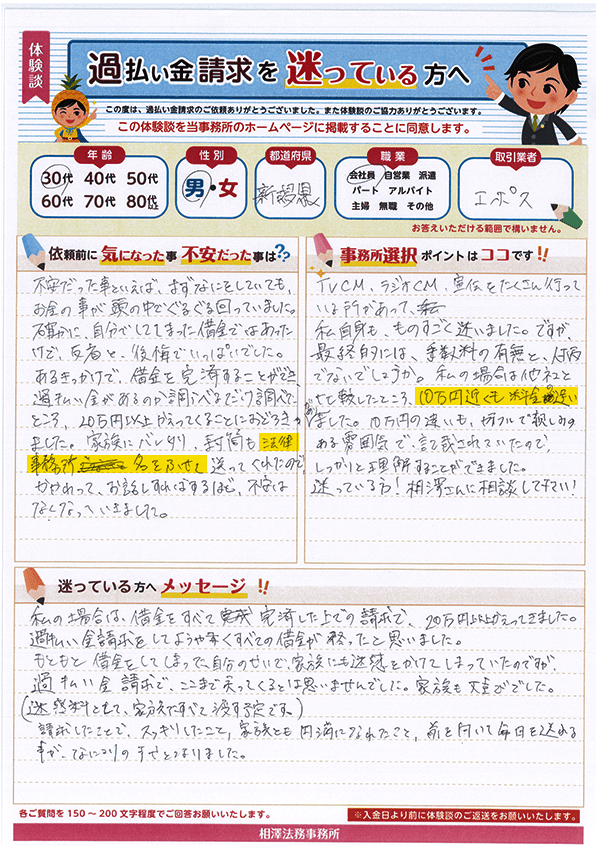 体験談
過払い金請求を迷っている方へ
この度は、過払い金請求のご依頼ありがとうございました。また体験談のご協力ありがとうございます。
この体験談を当事務所のホームページに掲載することに同意します。
年齢
30代 40代 50代
60代 70代 80代以上
性別
男・女
都道府県
新潟県
職業
会社員 自営業 派遣
パート アルバイト
主婦 無職 その他
取引業者
エポス
お答えいただける範囲で構いません。
依頼前に気になった事 不安だった事は??
不安だった事といえば、まずなにをしていても、
お金の事が頭の中でぐるぐる回っていました。
確かに、自分でしてしまった借金ではあった
けど、反省と、後悔でいっぱいでした。
あるきっかけで、借金を完済することができ、
過払い金があるのか調べるだけ調べた
ところ、20万円以上かえってくることにおどろき
ました。家族にバレタリ、封筒も法律
事務所 名をふせて送ってくれたので
かかわって、お話しすればするほど、不安は
なくなっていきました。
事務所選択ポイントはココです!!
TVCM、ラジオCM、宣伝をたくさん行って
いる所があって、
私自身も、ものすごく迷いました。ですが、
最終的には、手数料の有無と、対応
でないでしょうか。私の場合は他社と
比較したところ、10万円近くも料金の違い
がありました。10万円の違いも、切フルで親しみの
ある雰囲気で、記載されていたので、
しっかりと理解することができました。
迷っている方!相澤さんに相談して下さい!
迷っている方へメッセージ!!
私の場合は、借金をすべて 完済した上での請求で、20万円以上かえってきました。
過払い金請求をしてようやくすべての借金が終ったと思いました。
もともと借金をしてしまった、自分のせいで、家族にも迷惑をかけてしまっていたのですが、
過払い金請求で、ここまで戻ってくるとは思いませんでした。家族も大喜びでした。
(迷惑料として、家族にすべて渡す予定です。)
請求したことで、スッキリしたこと、家族とも円満になれたこと、前を向いて毎日を送れる
事が、なによりの幸せとなりました。
各ご質問を150~200文字程度でご回答お願いいたします。
※入金日より前に体験談のご返送をお願いいたします。
相澤法務事務所